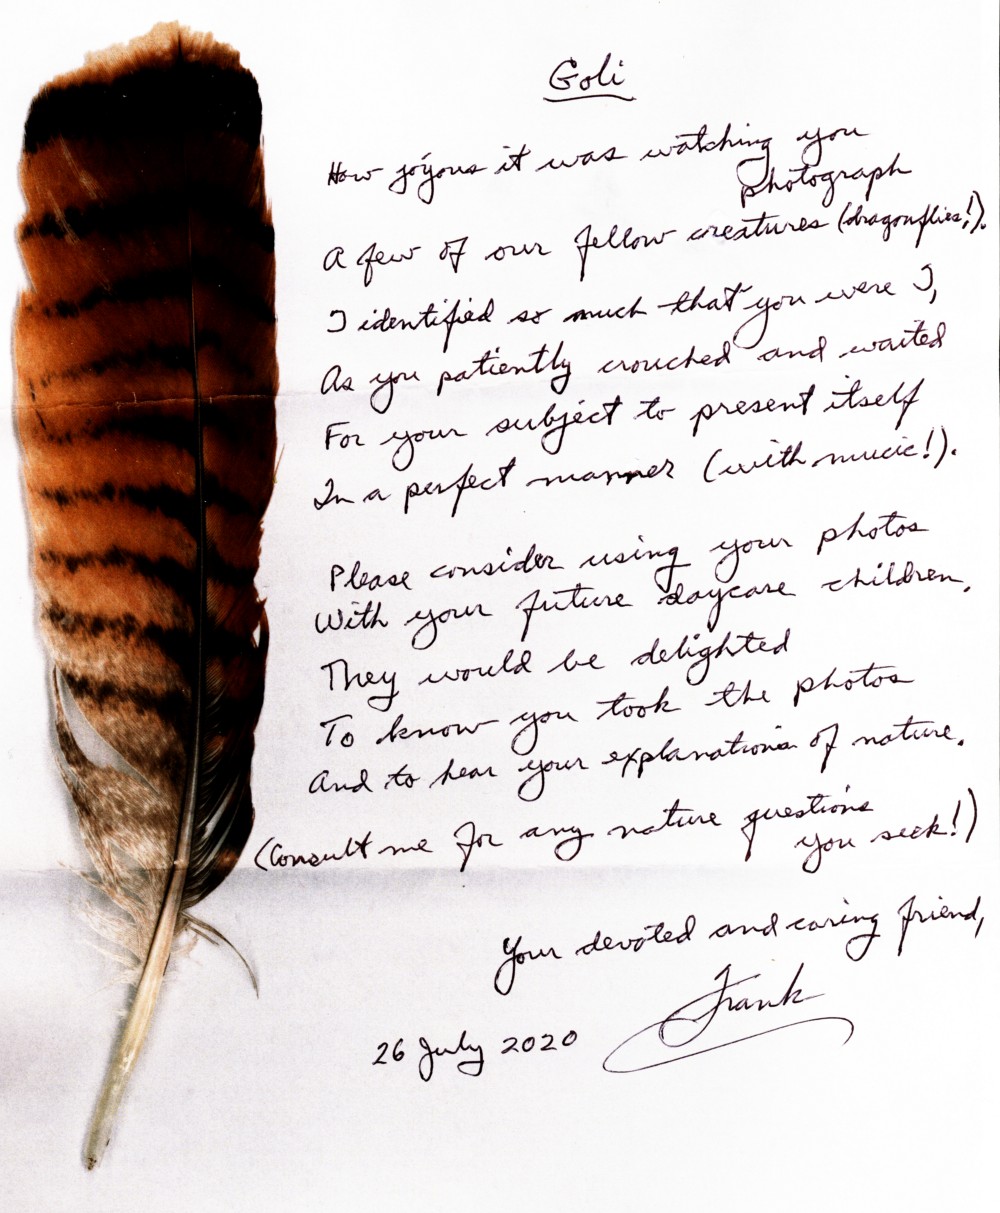 Goli
How joyous it was watching you
photograph
A few of our fellow creatures (dragonflies!).
I identified so much that you were I,
As you patiently crouched and waited
For your subject to present itself
In a perfect manner (with music!).
Please consider using your photos
With your future daycare children.
They would be delighted
To know you took the photos
And to hear your explanations of nature.
(Consult me for any nature questions
you seek!)
Your devoted and caring friend,
Frank
26 July 2020